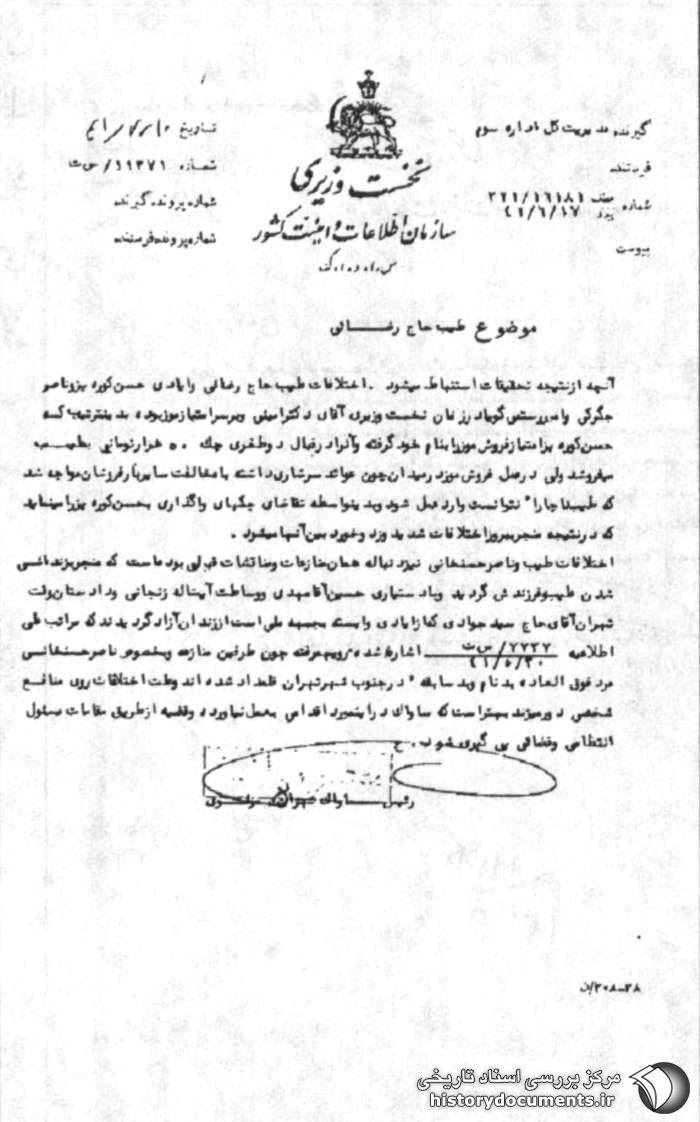 گیرنده مدیریت کل اداره سوم
فرستنده
شماره عطف ۳۲۱/۱۶۱۸۱
پیرو ۴۱/۶/۱۷
پیوست
نخست وزیری
سازمان اطلاعات و امنیت کشور
س.ا.و.ا.ک
تاریخ
شماره ۱۱۳۷۱/س ت
شماره پرونده گیرنده
شماره پرونده فرستنده
موضوع طیب حاج رضائی
آنچه از نتیجه تحقیقات استنباط میشود . اختلافات طیب حاج رضائی و ایادی حسن کوره پز و ناصر
جگرکی وامیررستمی گویا در زمان نخست وزیری آقای دکتر امینی و بر سر امتیاز موز بوده بدینترتیب که
حسن کوره پز امتیاز فروش موز را بنام خود گرفته و آنرا در قبال دو طغری چک ۵۰ هزار تومانی بطیب
میفروشد ولی در عمل فروش موز در میدان چون عوائد سرشاری داشته با مخالفت سایر بارفروشان مواجه شد
که طیب ناچارا" نتوانست وارد عمل شود و بدینواسطه تقاضای چکهای واگذاری بحسن کوره پز را مینماید
که در نتیجه منجر ببروز اختلافات شدید و زد و خورد بین آنها میشود .
اختلافات طیب و ناصر حسنخانی نیز دنباله همان منازعات و مناقشات قبلی بوده است که منجر بزندانی
شدن طیب و فرزندش گردید و با دستیاری حسین آقا مهدی و وساطت آیت اله زنجانی و دادستان وقت
تهران آقای حاج سید جوادی که از ایادی وابسته بجبهه ملی است از زندان آزاد گردیدند که مراتب طی
اطلاعیه ۷۲۳۷/س ت ۴۱/۵/۳۰ اشاره شده رویهمرفته چون طرفین منازعه و بخصوص ناصر حسنخانی
مرد فوق العاده بدنام و بد سابقه" در جنوب شهر تهران قلمداد شده اند و علت اختلافات روی منافع
شخصی دور میزند بهتر است که ساواک در اینمورد اقدامی بعمل نیاورده و قضیه از طریق مقامات مسئول
انتظامی و قضائی پی گیری شود . ح
رئیس ساواک تهران
۲۰۸-۳۸/ن
مرکز بررسی اسناد تاریخی
historydocuments.ir